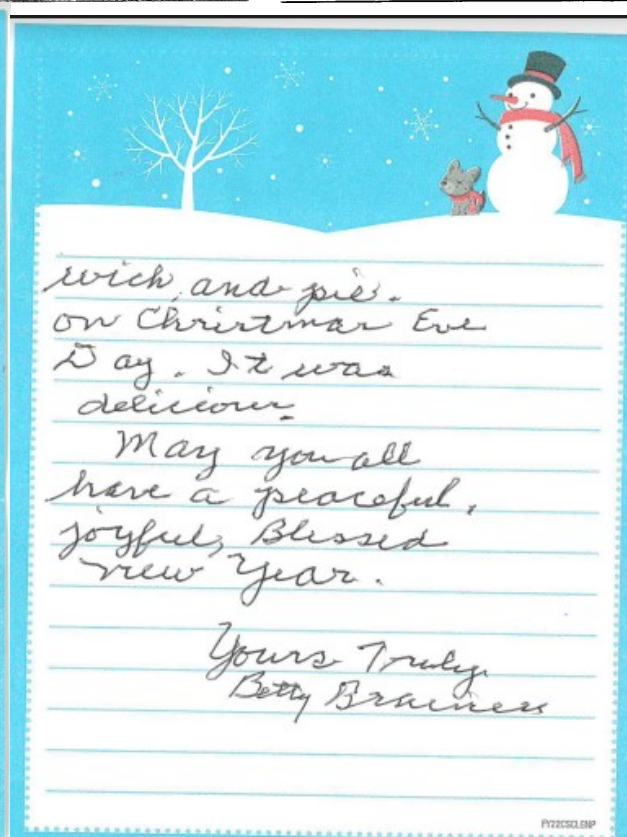 wich, and pie.
on Christmas Eve
Day. It was
delicious.
May you all
have a peaceful,
joyful, Blessed
new Year.
Yours Truly
Betty
FY22CSCLENP